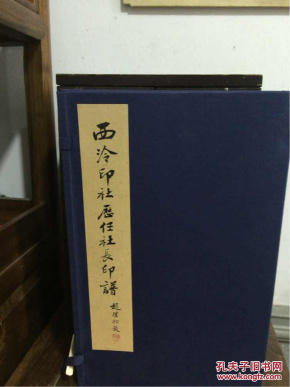 西泠印社歷任社長印譜
趙樸初
孔夫子旧书网
www.kongfz.com